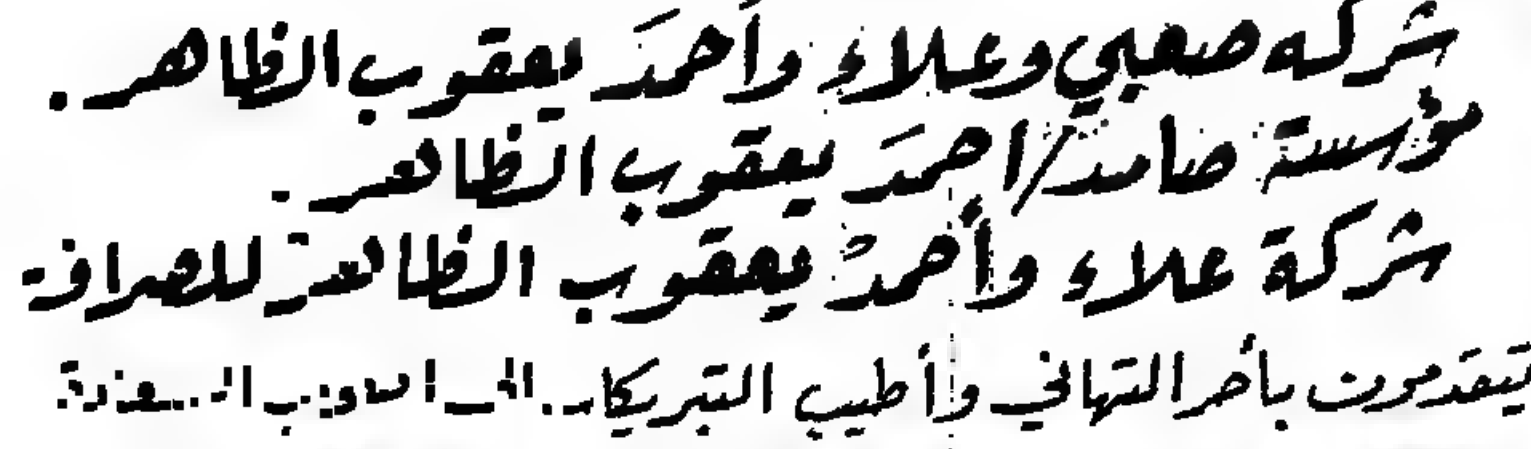 شركه صبحي وعلاء وأحمد يعقوب الظاهر .
مؤسسة صامد/احمد يعقوب الظاهر .
شركة علاء وأحمد يعقوب الظاهر للصرافة
يتقدمون بأحر التهاني وأطيب التبريكات الى